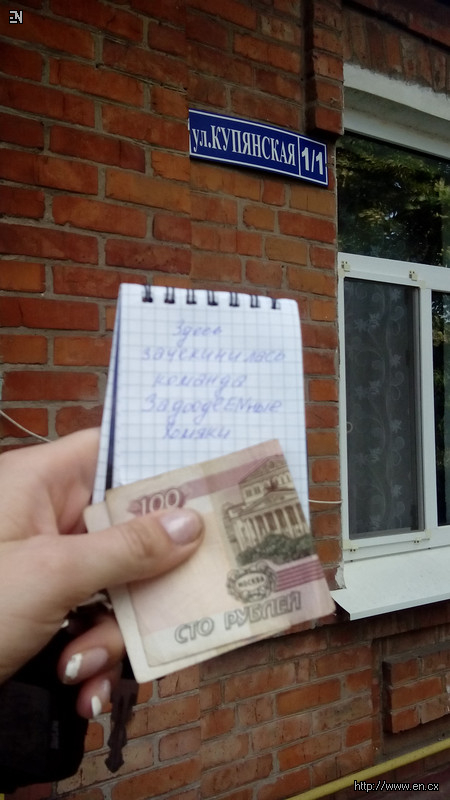 EN
ул.КУПЯНСКАЯ 1/1
Здесь
зачекинилась
команда
ЗадоодСЕМные
хомяки
100
МОСКВА
СТО РУБЛЕЙ
http://www.en.cx